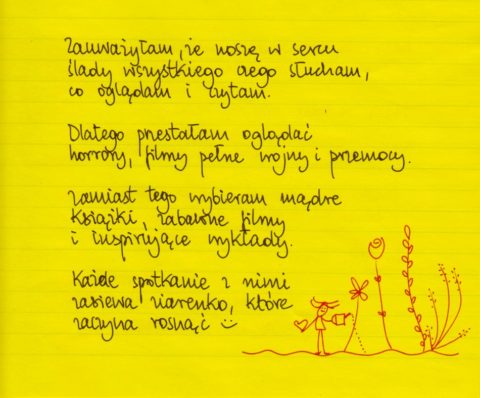 Zauważyłam, że noszę w sercu
ślady wszystkiego czego słucham,
co oglądam i czytam.
Dlatego przestałam oglądać
horrory, filmy pełne wojny i przemocy.
Zamiast tego wybieram mądre
książki, zabawne filmy
i inspirujące wykłady.
Każde spotkanie z nimi
zasiewa ziarenko, które
zaczyna rosnąć :)